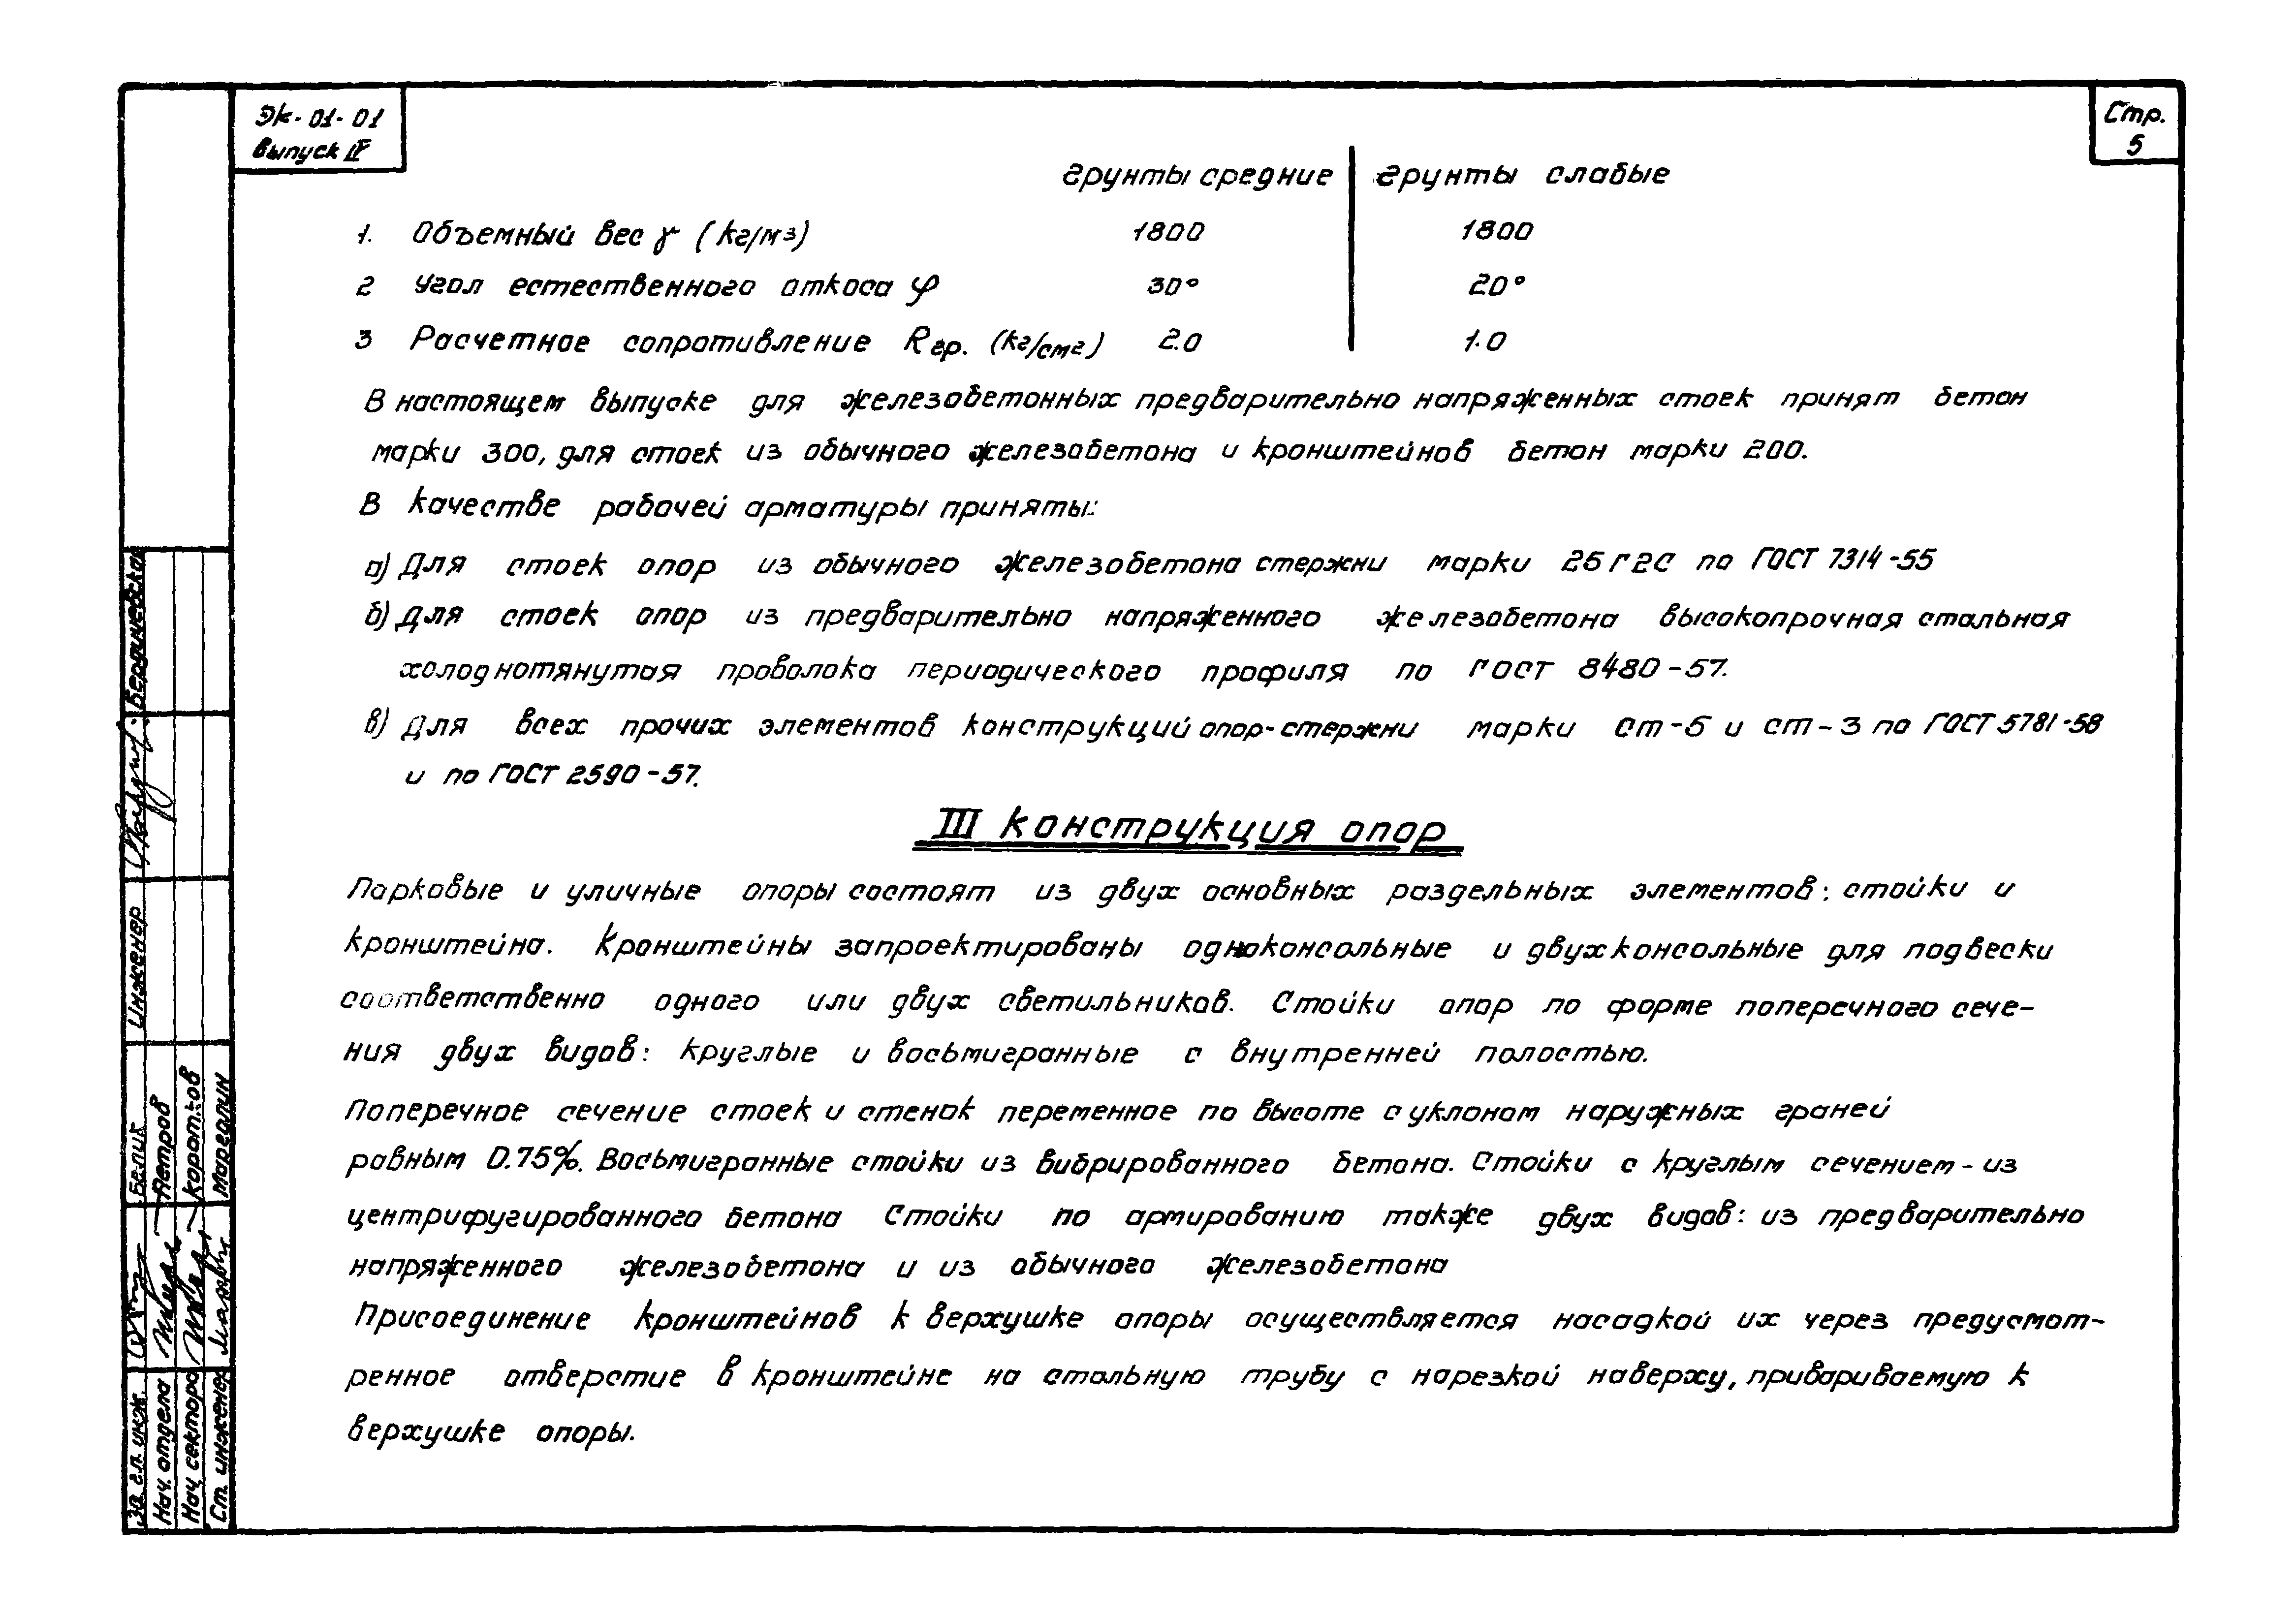 ЭК-01-01
Выпуск IV
Стр.
5
грунты средние грунты слабые
1. Объемный вес γ (кг/м3) 1800 1800
2 Угол естественного откоса φ 30° 20°
3 Расчетное сопротивление Rгр. (кг/см2) 2.0 1.0
В настоящем выпуске для железобетонных предварительно напряженных стоек принят бетон
марки 300, для стоек из обычного железобетона и кронштейнов бетон марки 200.
В качестве рабочей арматуры приняты:
а) Для стоек опор из обычного железобетона стержни марки 25Г2С по ГОСТ 7314-55
б) Для стоек опор из предварительно напряженного железобетона высокопрочная стальная
холоднотянутая проволока периодического профиля по ГОСТ 8480-57.
в) Для всех прочих элементов конструкций опор-стержни марки Ст-5 и ст-3 по ГОСТ 5781-58
и по ГОСТ 2590-57.
III конструкция опор
Парковые и уличные опоры состоят из двух основных раздельных элементов: стойки и
кронштейна. Кронштейны запроектированы одноконсольные и двухконсольные для подвески
соответственно одного или двух светильников. Стойки опор по форме поперечного сече-
ния двух видов: круглые и восьмигранные с внутренней полостью.
Поперечное сечение стоек и стенок переменное по высоте с уклоном наружных граней
равным 0.75%. Восьмигранные стойки из вибрированного бетона. Стойки с круглым сечением-из
центрифугированного бетона Стойки по армированию также двух видов: из предварительно
напряженного железобетона и из обычного железобетона
Присоединение кронштейнов к верхушке опоры осуществляется насадкой их через предусмот-
ренное отверстие в кронштейне на стальную трубу с нарезкой наверху, привариваемую к
верхушке опоры.
Зв. гл. инж. Белик инженер Бердичевская
Нач. отдела Петров
Нач. сектора
Ст. инженер Марголин